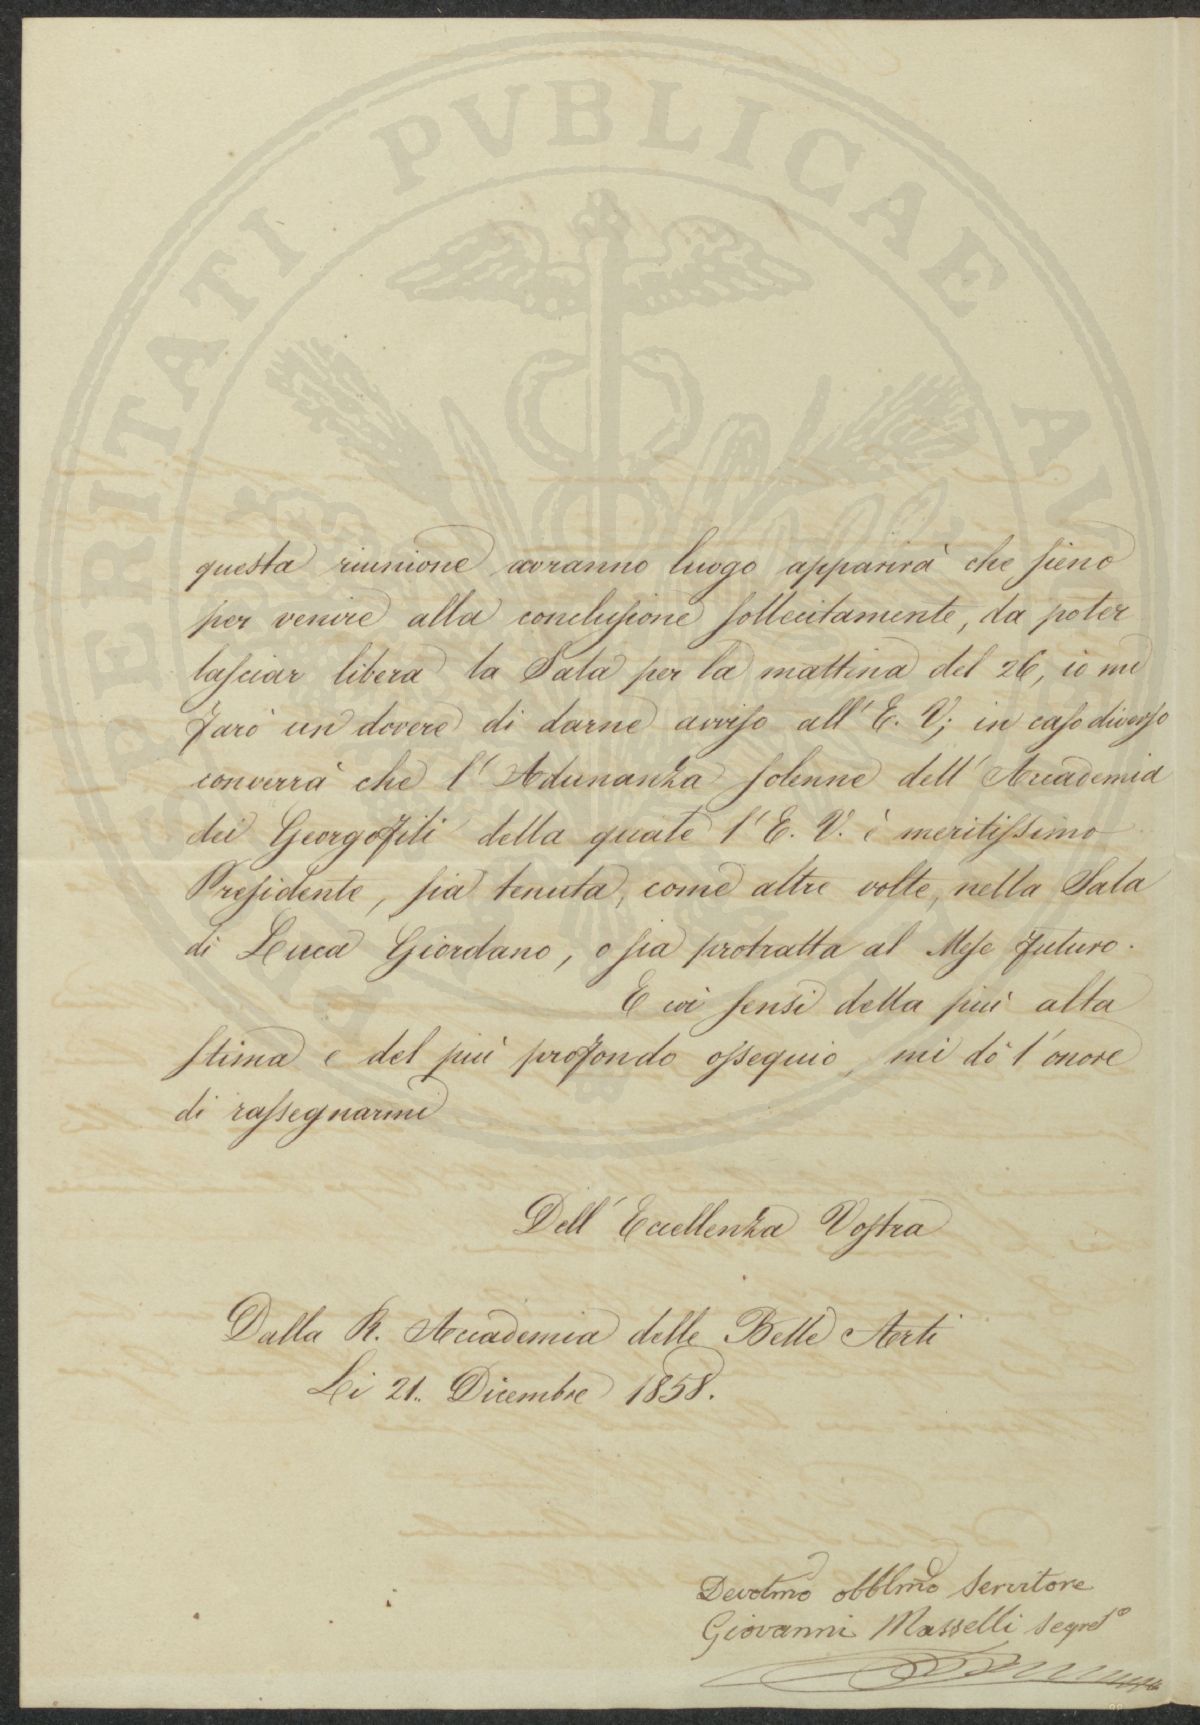 PROSPERITATI PVBLICAE AVGENDAE
questa riunione avranno luogo apparirà che sieno
per venire alla conclusione sollecitamente, da poter
lasciar libera la Sala per la mattina del 26, io mi
farò un dovere di darne avviso all' E. V; in caso diverso
converrà che l' Adunanza solenne dell' Accademia
dei Georgofili della quale l' E. V. è meritissimo
Presidente, sia tenuta, come altre volte, nella Sala
di Luca Giordano, o sia protratta al Mese futuro.
E coi sensi della più alta
stima e del più profondo ossequio, mi dò l' onore
di rassegnarmi
Dell' Eccellenza Vostra
Dalla R. Accademia delle Belle Arti
Li 21. Dicembre 1858.
Devotmo obblmo servitore
Giovanni Masselli segreto